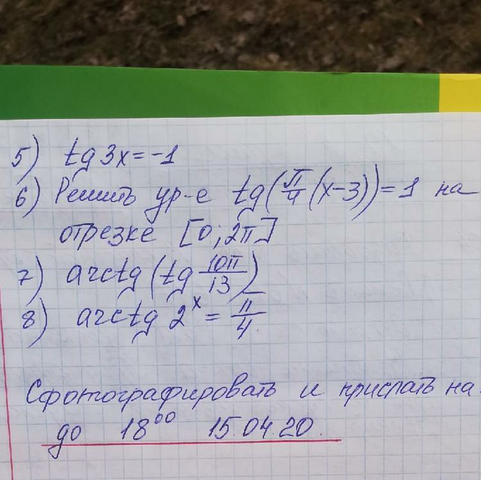 5) tg 3x = -1
6) Решить ур-е tg(π/4(x-3))=1 на
отрезке [0; 2π]
7) arctg(tg 10π/13)
8) arctg 2^x = π/4
Сфотографировать и прислать на
до 18⁰⁰ 15.04.20.